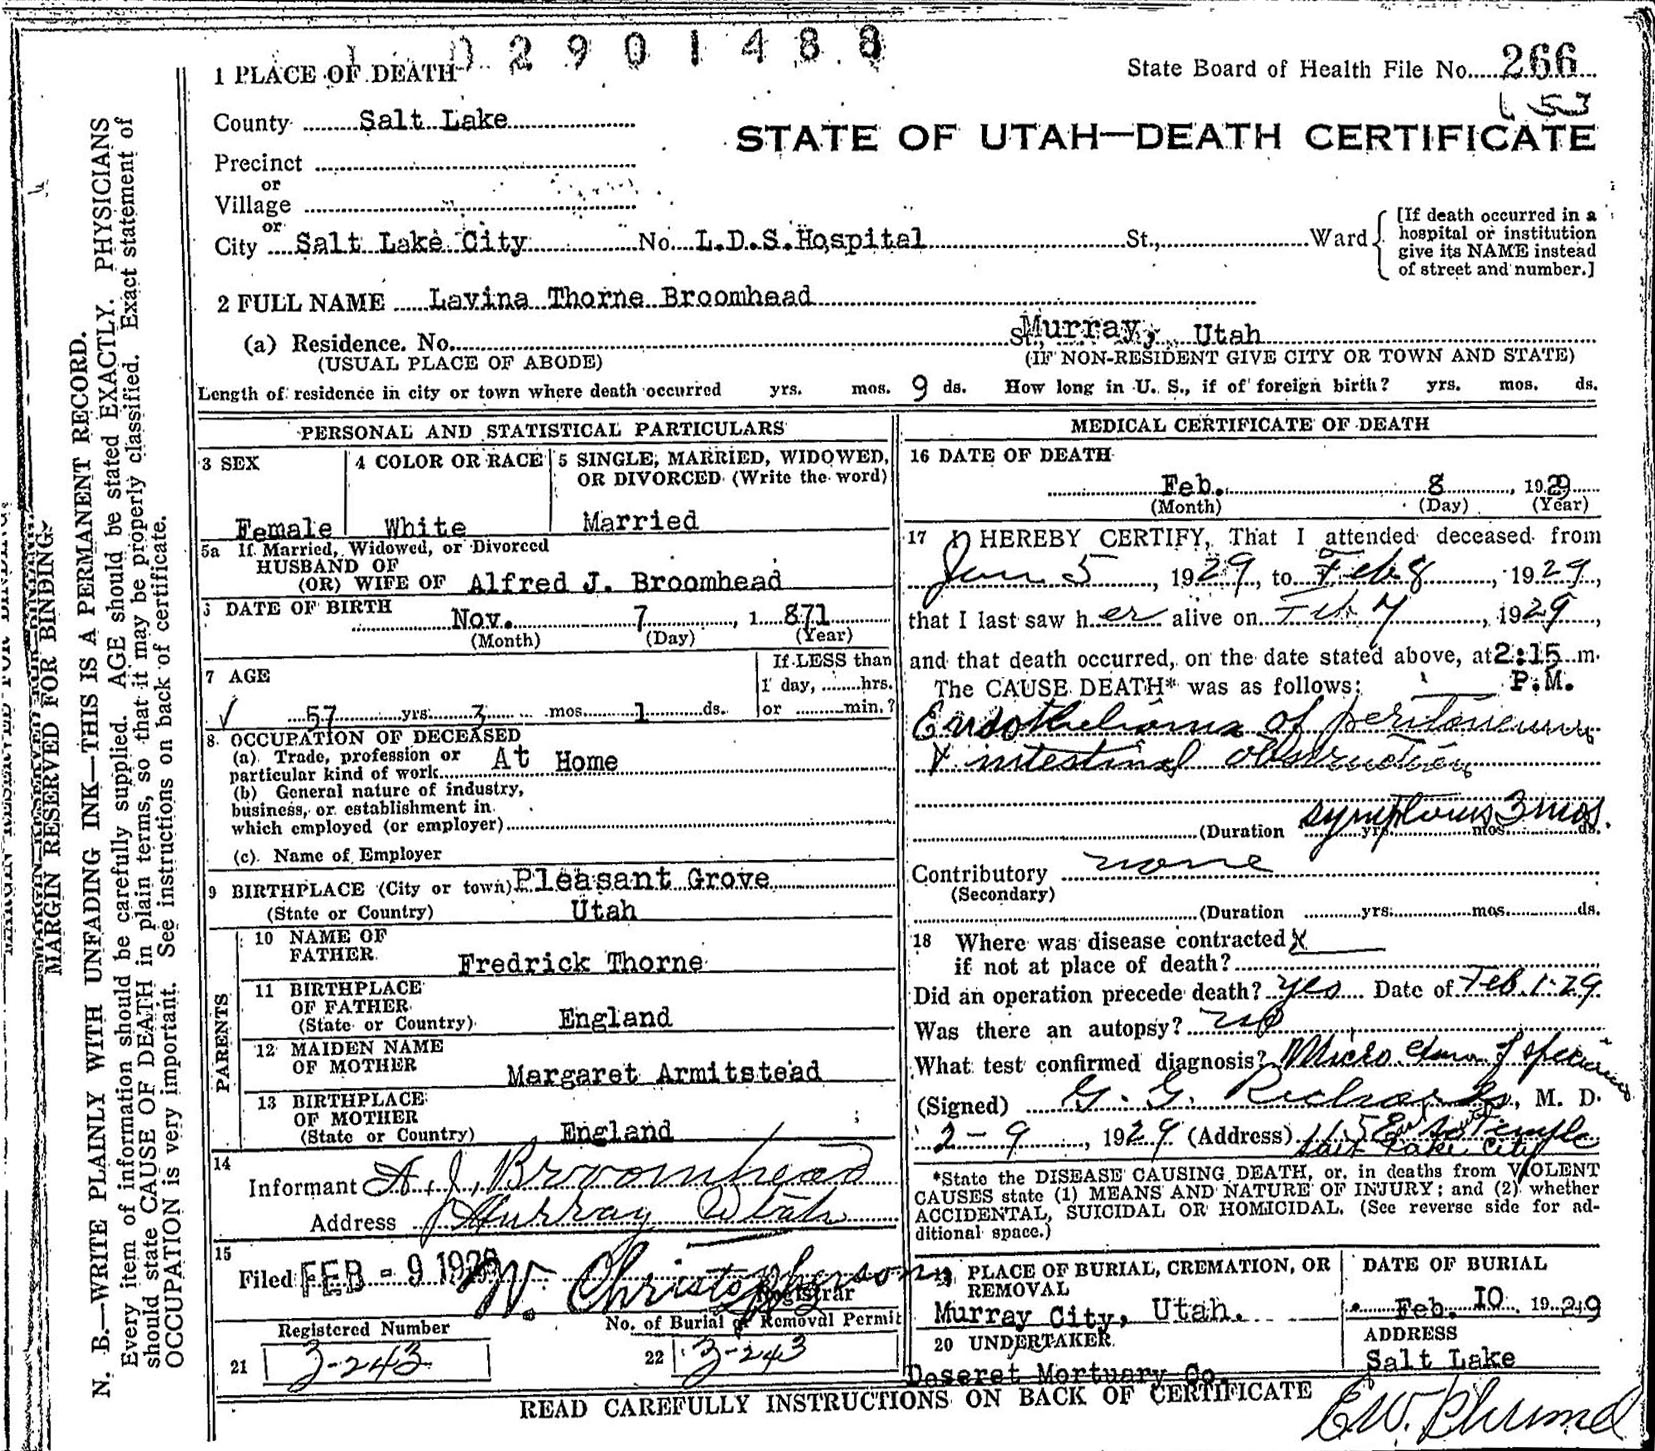 02901488
1 PLACE OF DEATH
State Board of Health File No. 266
County Salt Lake
STATE OF UTAH—DEATH CERTIFICATE
Precinct
or
Village
or
City Salt Lake City No. L.D.S.Hospital St., Ward
[If death occurred in a
hospital or institution
give its NAME instead
of street and number.]
2 FULL NAME Lavina Thorne Broomhead
(a) Residence. No. St. Murray, Utah
(USUAL PLACE OF ABODE) (IF NON-RESIDENT GIVE CITY OR TOWN AND STATE)
Length of residence in city or town where death occurred yrs. mos. 9 ds. How long in U. S., if of foreign birth? yrs. mos. ds.
PERSONAL AND STATISTICAL PARTICULARS
3 SEX
Female
4 COLOR OR RACE
White
5 SINGLE, MARRIED, WIDOWED,
OR DIVORCED (Write the word)
Married
5a If Married, Widowed, or Divorced
HUSBAND OF
(OR) WIFE OF Alfred J. Broomhead
DATE OF BIRTH
Nov. 7, 1871
(Month) (Day) (Year)
7 AGE
57 yrs. 3 mos. 1 ds.
If LESS than
1 day, hrs.
or min.?
8 OCCUPATION OF DECEASED
(a) Trade, profession or
particular kind of work At Home
(b) General nature of industry,
business, or establishment in
which employed (or employer)
(c) Name of Employer
9 BIRTHPLACE (City or town) Pleasant Grove
(State or Country) Utah
PARENTS
10 NAME OF
FATHER
Fredrick Thorne
11 BIRTHPLACE
OF FATHER
(State or Country) England
12 MAIDEN NAME
OF MOTHER
Margaret Armitstead
13 BIRTHPLACE
OF MOTHER
(State or Country) England
14
Informant A. J. Broomhead
Address Murray Utah
15
Filed FEB - 9 1929 W. Christopherson
Registrar
Registered Number
21 3-243
No. of Burial or Removal Permit
22 3-243
MEDICAL CERTIFICATE OF DEATH
16 DATE OF DEATH
Feb. 8, 1929
(Month) (Day) (Year)
17 I HEREBY CERTIFY, That I attended deceased from
Jan 5, 1929, to Feb 8, 1929,
that I last saw her alive on Feb 7, 1929,
and that death occurred, on the date stated above, at 2:15 m.
P.M.
The CAUSE DEATH* was as follows:
Endothelioma of peritoneum
& intestinal obstruction
(Duration symptoms 3 mos. yrs. mos. ds.
Contributory none
(Secondary)
(Duration yrs. mos. ds.
18 Where was disease contracted
if not at place of death?
Did an operation precede death? yes Date of Feb. 1-29
Was there an autopsy? no
What test confirmed diagnosis? Micro exam of specimen
(Signed) G. G. Richards, M. D.
2-9, 1929 (Address) 115 E So Temple
Salt Lake City
*State the DISEASE CAUSING DEATH, or, in deaths from VIOLENT
CAUSES state (1) MEANS AND NATURE OF INJURY; and (2) whether
ACCIDENTAL, SUICIDAL OR HOMICIDAL. (See reverse side for ad-
ditional space.)
19 PLACE OF BURIAL, CREMATION, OR
REMOVAL
Murray City, Utah.
DATE OF BURIAL
Feb. 10, 1929
20 UNDERTAKER
Deseret Mortuary Co.
ADDRESS
Salt Lake
READ CAREFULLY INSTRUCTIONS ON BACK OF CERTIFICATE
MARGIN RESERVED FOR BINDING.
N. B.—WRITE PLAINLY WITH UNFADING INK—THIS IS A PERMANENT RECORD.
Every item of information should be carefully supplied. AGE should be stated EXACTLY. PHYSICIANS
should state CAUSE OF DEATH in plain terms, so that it may be properly classified. Exact statement of
OCCUPATION is very important. See instructions on back of certificate.